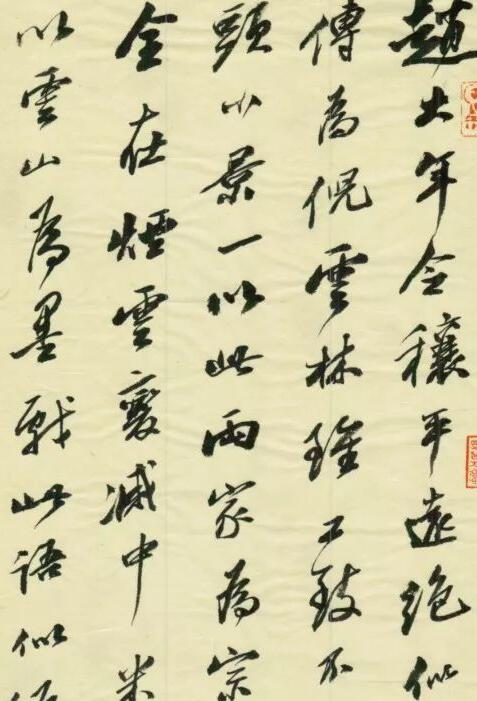 趙大年令穰平遠絕似
傳為倪雲林雖工致不
頭小景一以此兩家為宗
全在煙雲變滅中米
以雲山為墨戲此語似